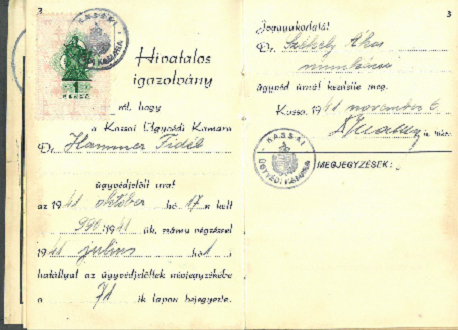 3
1
PENGŐ
KASSAI
ÜGYVÉDI KAMARA
Hivatalos
igazolvány
ról, hogy
a Kassai Ügyvédi Kamara
Dr. Hammer Fidél
ügyvédjelölt urat
az 1941 október hó 17-n kelt
990:1941 üb. számu végzéssel
1941 julius hó 1
hatállyal az ügyvédjelöltek névjegyzékébe
a 71 ik lapon bejegyezte.
3
Joggyakorlatát
Dr. Székely Ákos
munkácsi
ügyvéd úrnál kezdte meg.
Kassa, 1941 november 6
KASSAI
ÜGYVÉDI KAMARA
MEGJEGYZÉSEK: